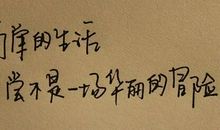 单的生活
尝不是一场华丽的冒险